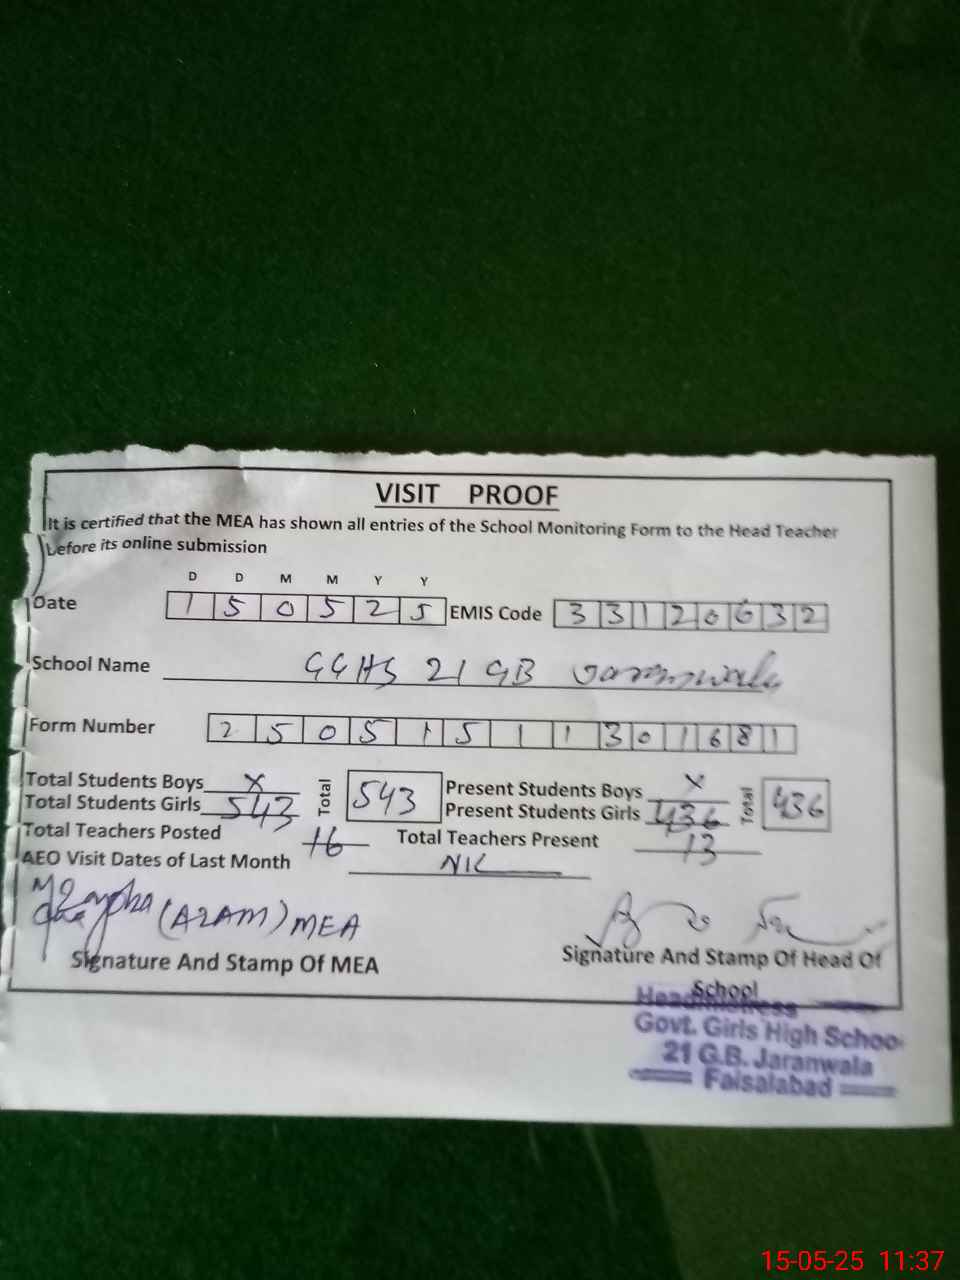 VISIT PROOF
It is certified that the MEA has shown all entries of the School Monitoring Form to the Head Teacher
before its online submission
D D M M Y Y
Date 1 5 0 5 2 5 EMIS Code 3 3 1 2 0 6 3 2
School Name GGHS 21 GB Jaranwala
Form Number 2 5 0 5 1 5 1 1 3 0 1 6 8 1
Total Students Boys X Total 543 Present Students Boys X Total 436
Total Students Girls 543 Present Students Girls 436
Total Teachers Posted 16 Total Teachers Present 13
AEO Visit Dates of Last Month NIL
(AZAM) MEA
Signature And Stamp Of MEA
Signature And Stamp Of Head Of
School
Headmistress
Govt. Girls High School
21 G.B. Jaranwala
Faisalabad
15-05-25 11:37